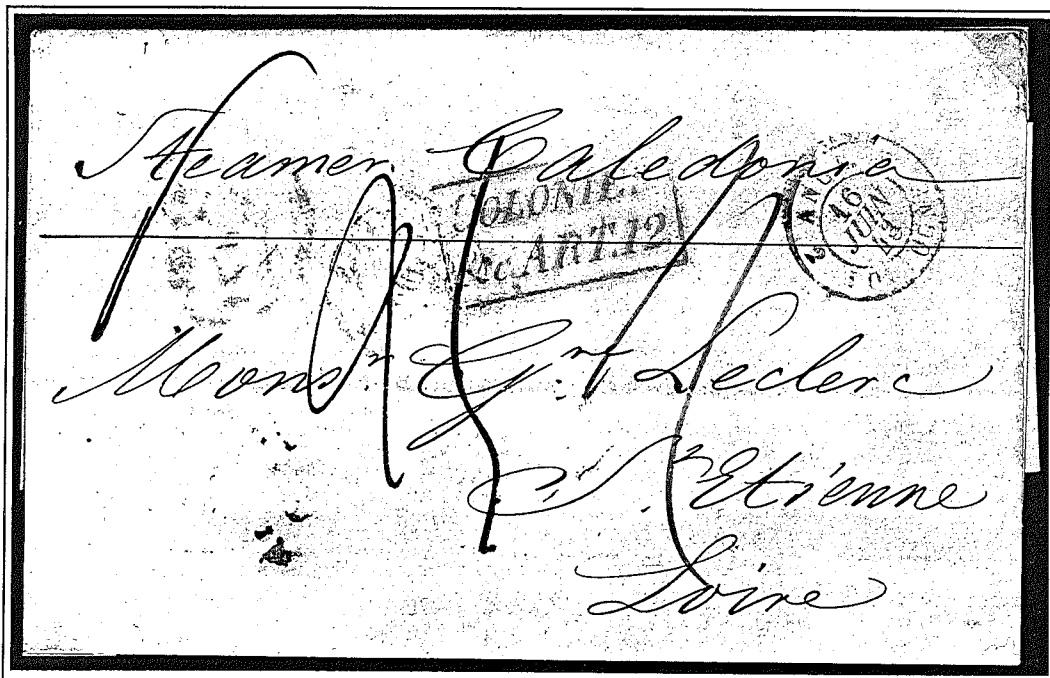 Steamer Caledonia
COLONIE.
&c ART.12
2 ANGL.
16
JUIN
43
Monsr. Gr. Leclerc
St. Etienne
Loire